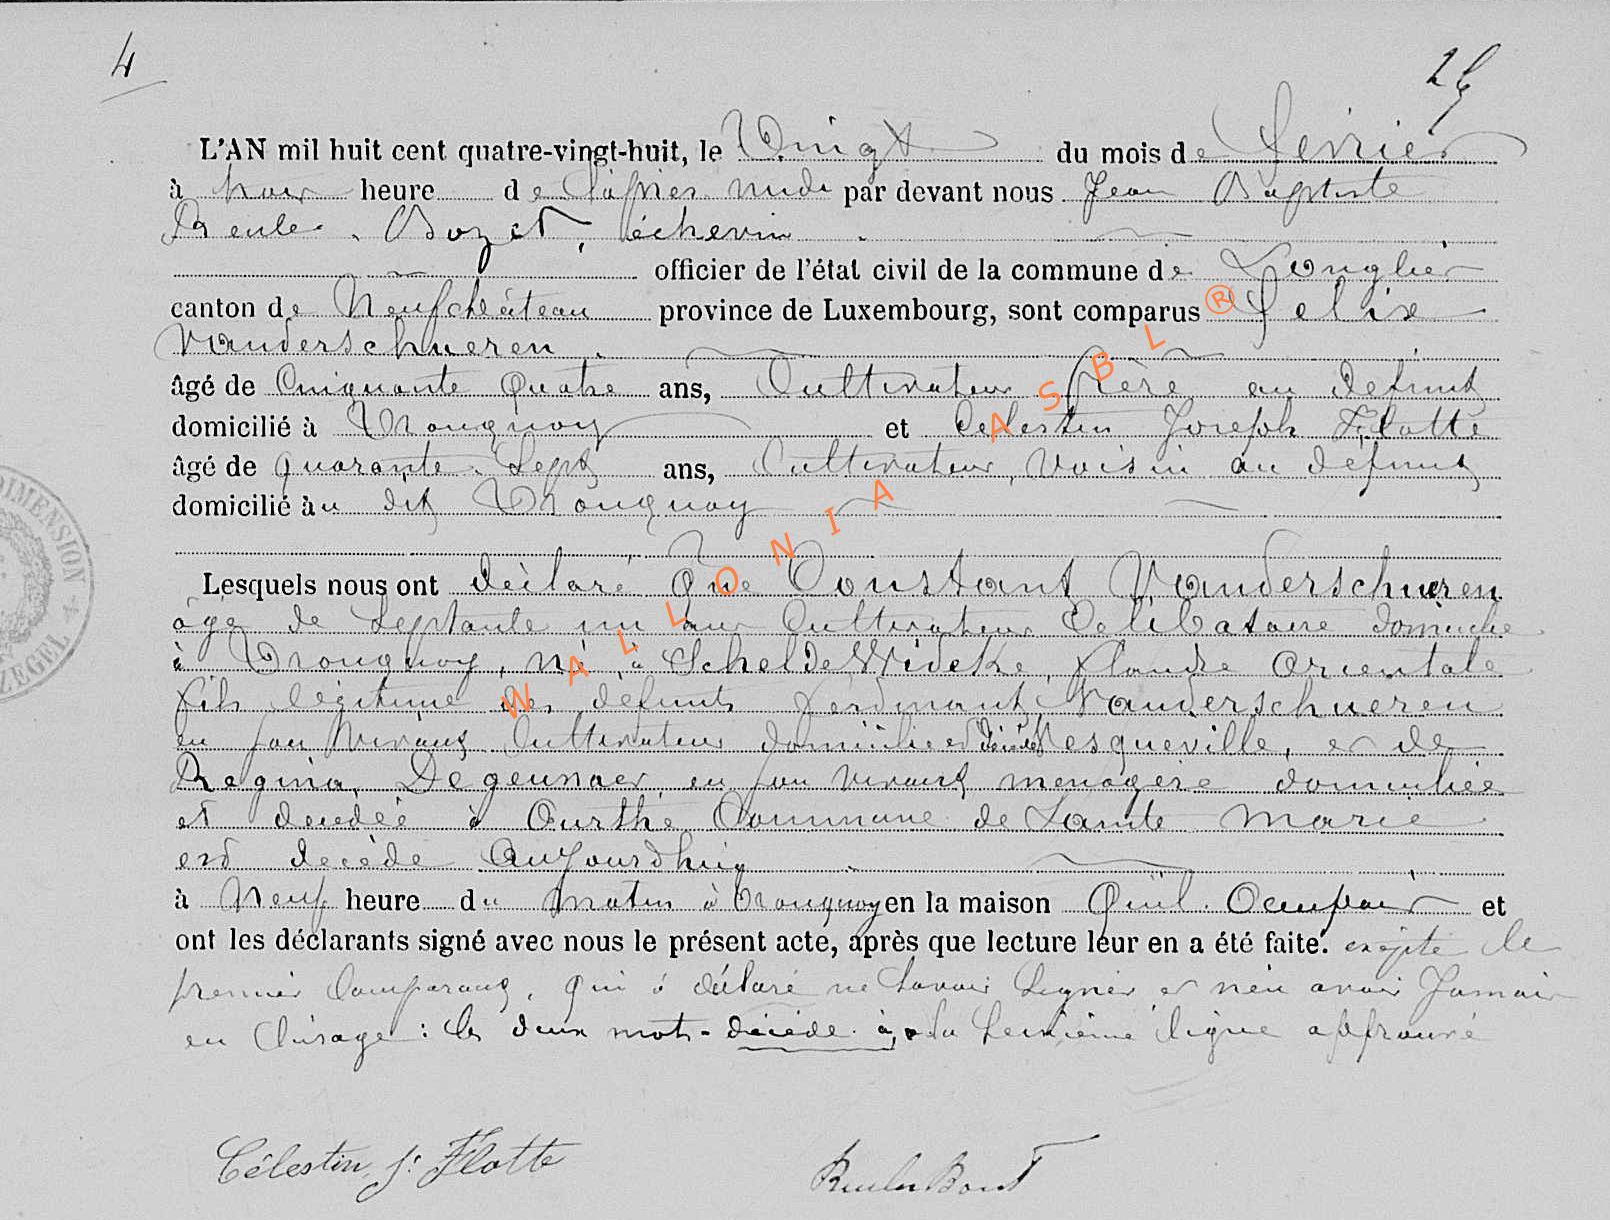 4
L'AN mil huit cent quatre-vingt-huit, le Vingt du mois de Fevrier
à trois heure de l'après midi par devant nous Jean Baptiste
Reuler Bozet, échevin
officier de l'état civil de la commune de Longlier
canton de Neufchâteau province de Luxembourg, sont comparus Felix
Vanderschueren
âgé de Cinquante quatre ans, Cultivateur frère au défunt
domicilié à Tronquoy et Celestin Joseph Flotte
âgé de quarante Sept ans, Cultivateur, voisin au défunt
domicilié au dit Tronquoy
Lesquels nous ont déclaré que Constant Vanderschueren
âgé de Septante un ans Cultivateur Celibataire domicilié
à Tronquoy, né à Scheldewideke, flandre Orientale
fils légitime des défunts ferdinant Vanderschueren
en son vivant Cultivateur domicilié et décédé à Resqueville, et de
Regina Degeunaer, en son vivant menagère domiciliée
et decedée à Ourthe Commune de Sainte Marie
est decède aujourdhuy
à Neuf heure du matin à Tronquoy en la maison Qu'il Occupait et
ont les déclarants signé avec nous le présent acte, après que lecture leur en a été faite. exepté le
premier Comparant, qui à déclaré ne Savoir Signer et n'en avoir Jamais
eu l'usage: les deux mots décédé à, la ligne approuvé
Célestin J. Flotte
Reuler Bozet
DIMENSION
ZEGEL
WALLONIA ASBL ®